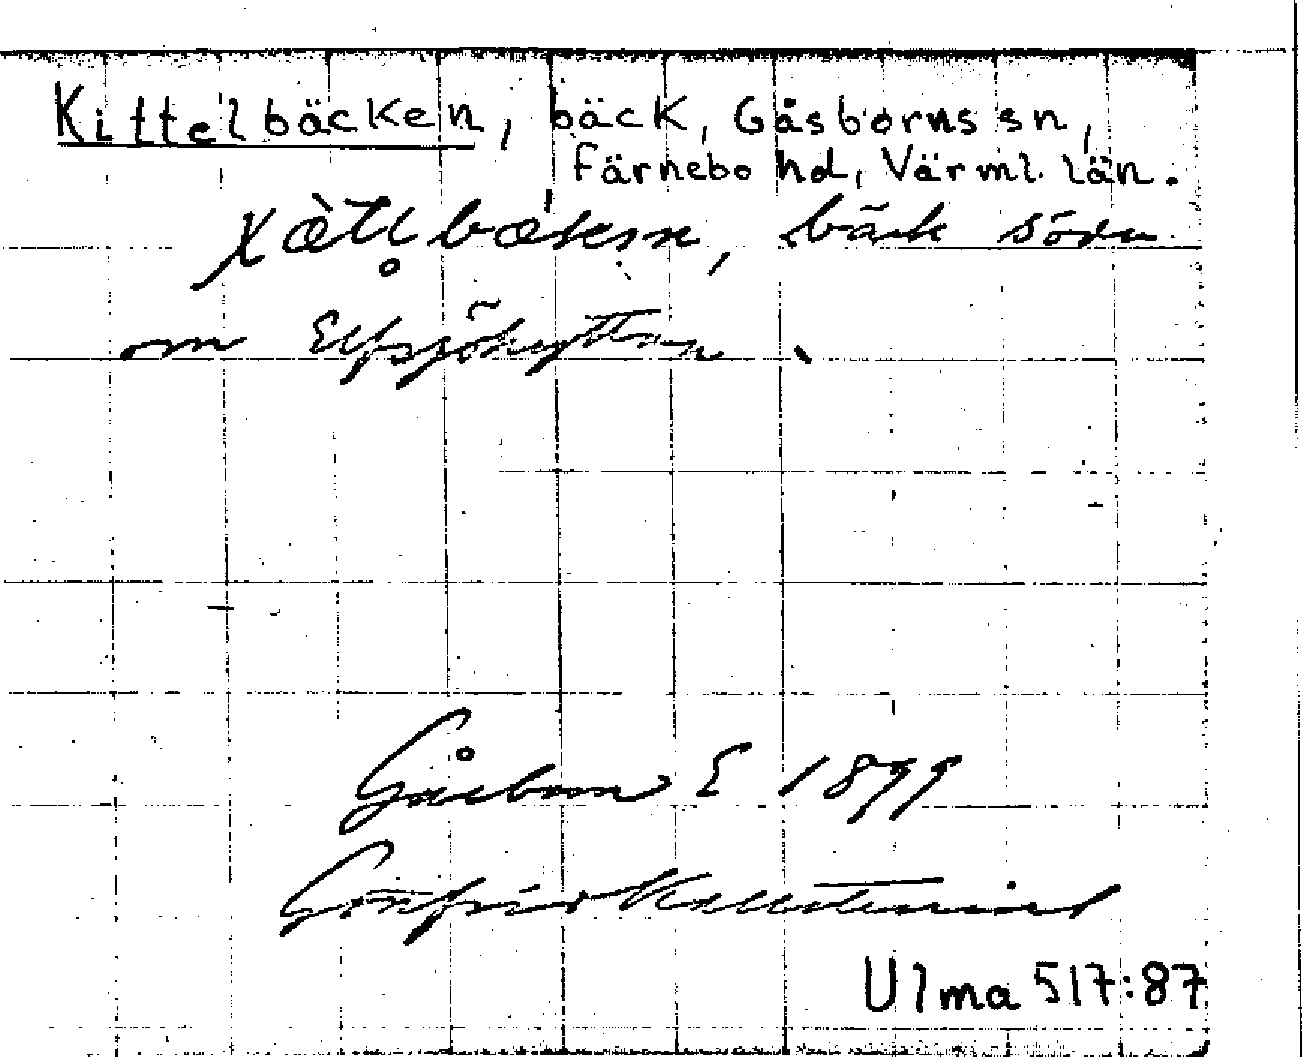 Kittelbäcken, bäck, Gåsborns sn,
Färnebo hd, Värml. län.
bäck söder
om Elfsjöhyttan.
Gåsborn S 1899
Gottfrid Kallstenius
Ulma 517:87